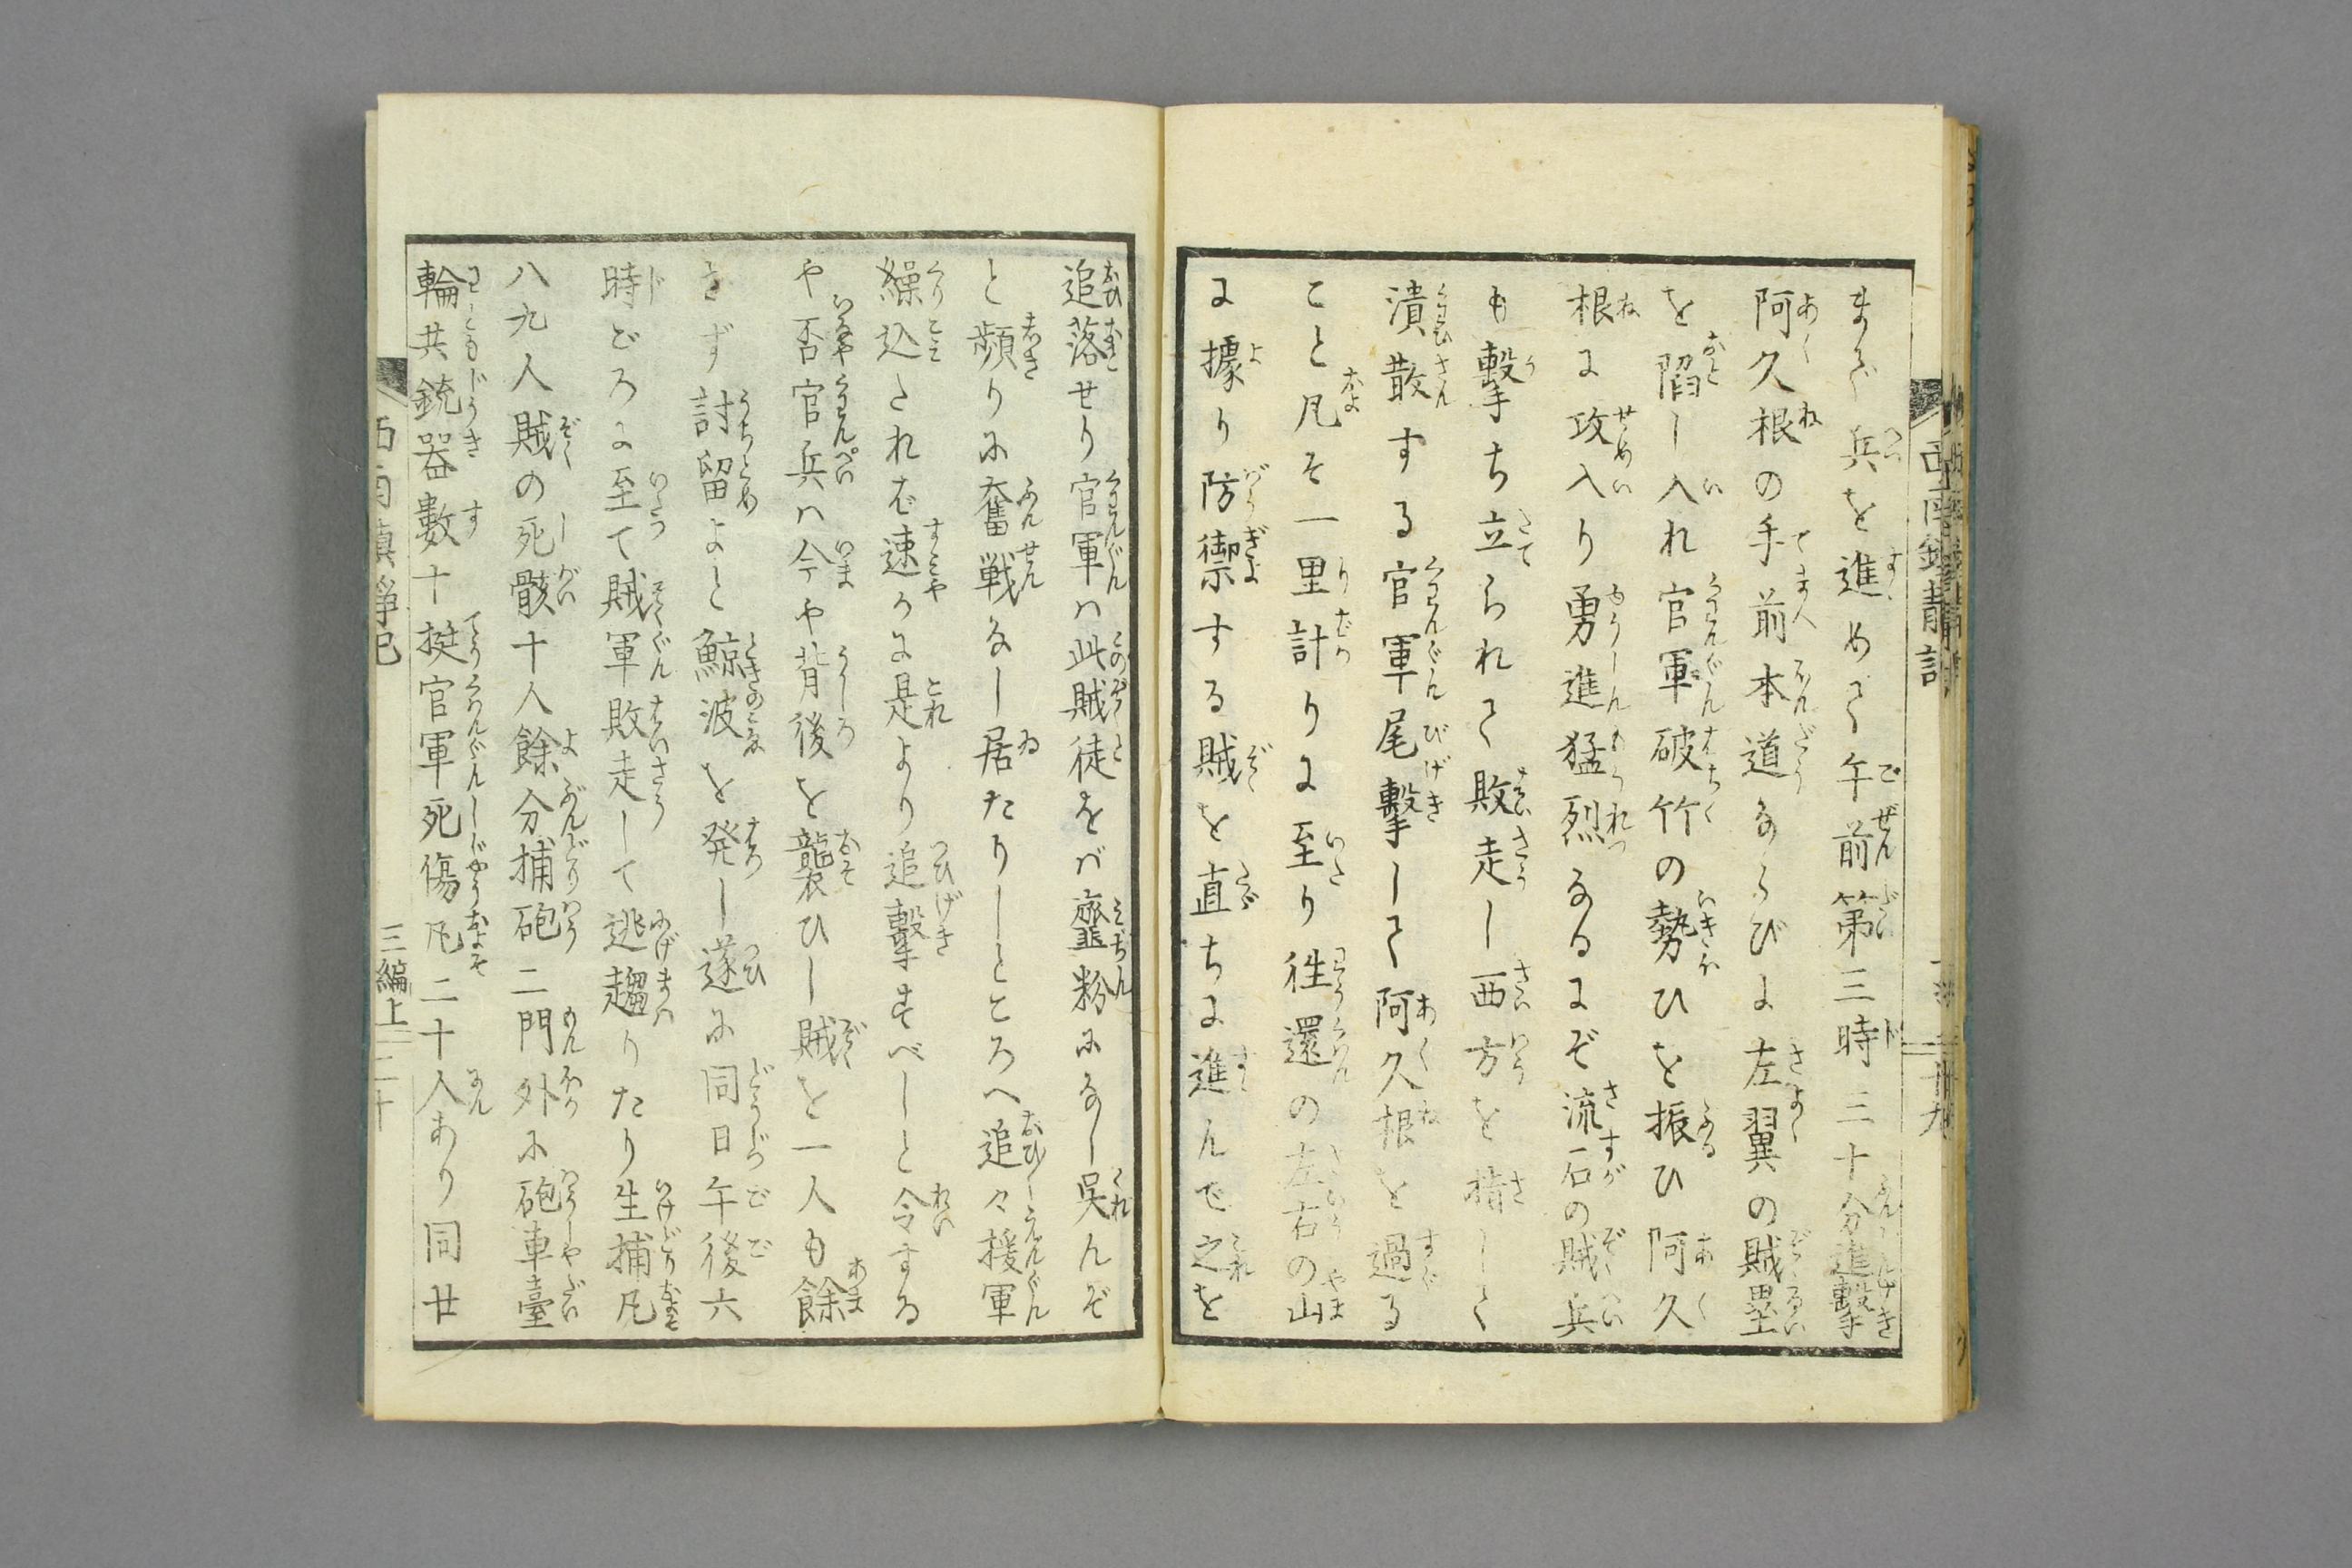 まで兵を進めて午前第三時三十分進撃
阿久根の手前本道ならびに左翼の賊塁
を陥し入れ官軍破竹の勢ひを振ひ阿久
根に攻入り勇進猛烈なるにぞ流石の賊兵
も撃ち立られて敗走し西方を指して
潰散する官軍尾撃して阿久根を過る
こと凡そ一里計りに至り徃還の左右の山
に據り防禦する賊を直ちに進んで之を
追落せり官軍ハ此賊徒をバ虀粉になし呉んぞ
と頻りに奮戦なし居たりしところへ追々援軍
繰込されば速かに是より追撃すべしと令する
や否官兵ハ今や背後を襲ひし賊を一人も餘
さず討留よと鯨波を発し遂に同日午後六
時ごろに至て賊軍敗走して逃趨りたり生捕凡
八九人賊の死骸十人餘分捕砲二門外に砲車臺
輪共銃器數十挺官軍死傷凡二十人あり同廿
三編上
二十